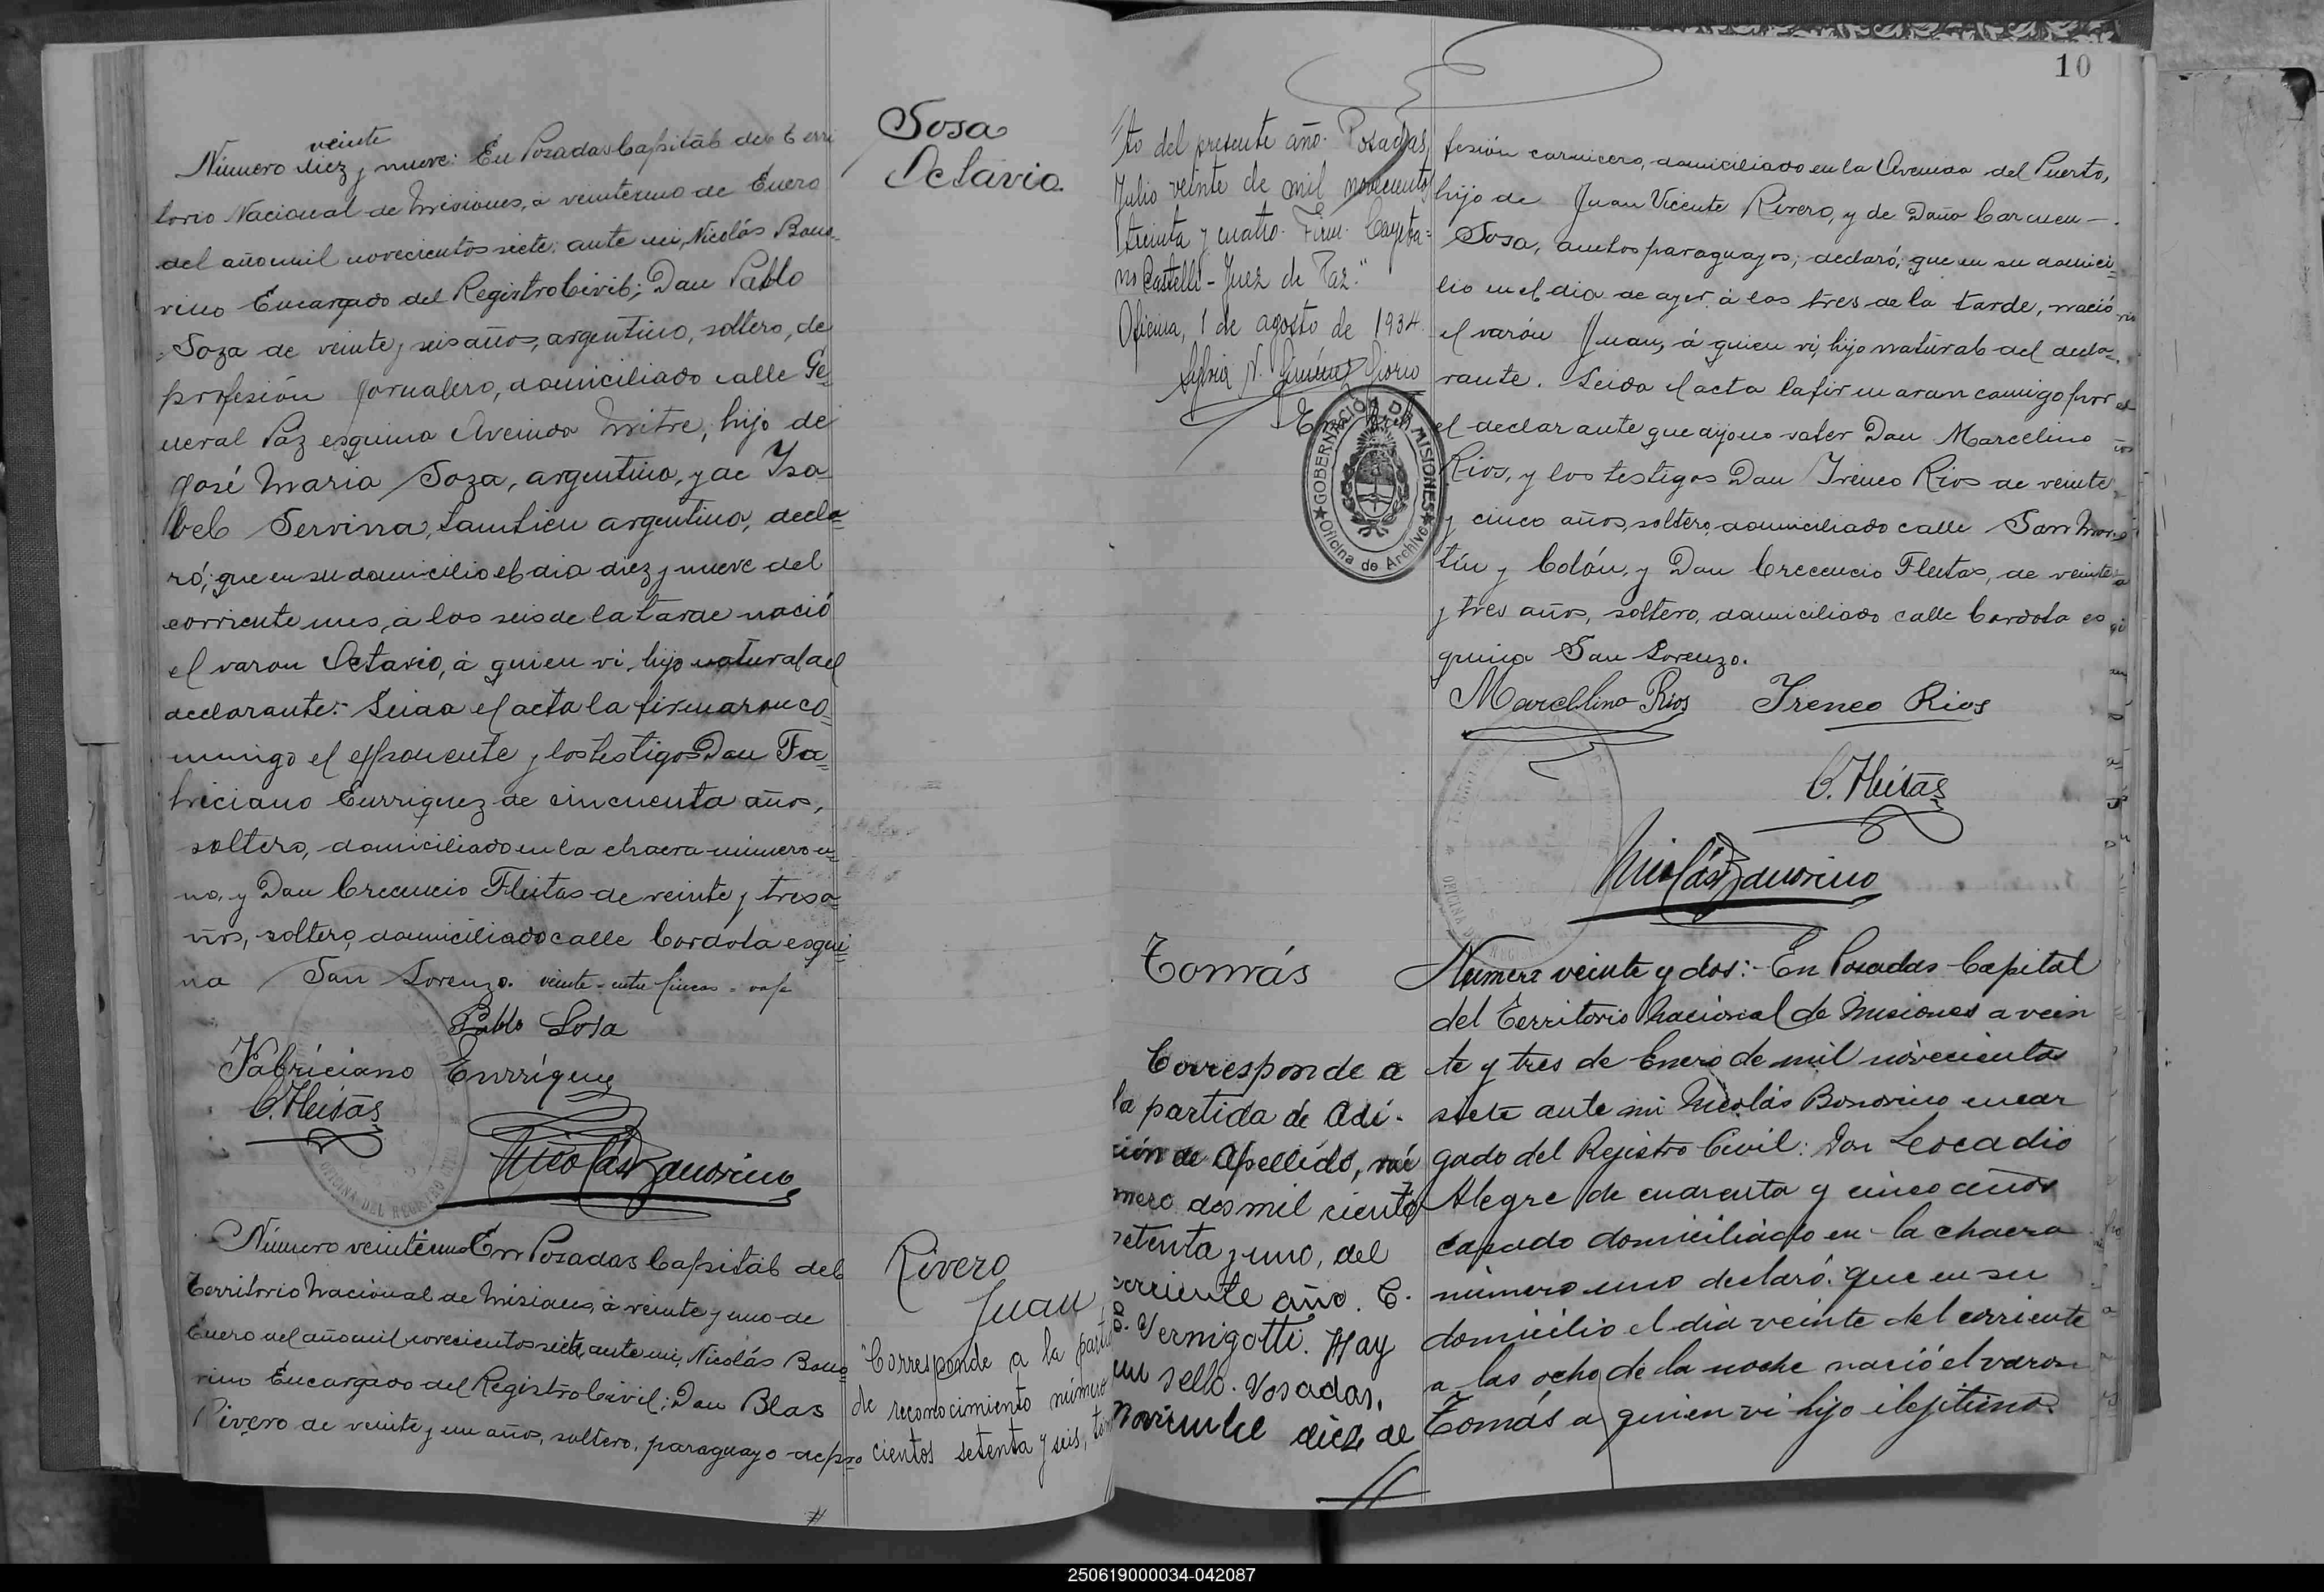 Sosa
Octavio
veinte
Número diez y nueve: En Posadas Capital del Terri
torio Nacional de Misiones, à veintiuno de Enero
del año mil novecientos siete: ante mi, Nicolás Bono-
rino Encargado del Registro Civil; Don Pablo
Soza de veinte y seis años, argentino, soltero, de
profesión Jornalero, domiciliado calle Ge=
neral Paz esquina Avenida Mitre, hijo de
José Maria Soza, argentino, y de Isa=
bel Servina, tambien argentina, decla=
ró; que en su domicilio el dia diez y nueve del
corriente mes, à las seis de la tarde nació
el varon Octavio, à quien vi, hijo natural del
declarante.- Leida el acta la firmaron co=
nmigo el esponente y los testigos Don Fa=
briciano Enrriquez de cincuenta años,
soltero, domiciliado en la chacra numero u=
no, y Don Crecencio Fleitas de veinte y tres a=
ños, soltero, domiciliado calle Cordoba esqui=
na San Lorenzo. veinte - entre lineas = vale
Pablo Sosa
Fabriciano Enrriquez
C. Fleitas
Nicolás Bonorino
OFICINA DEL REGISTRO CIVIL
Rivero
Juan
Número veintiuno En Posadas Capital del
Territorio Nacional de Misiones, à veinte y uno de
Enero del año mil novecientos siete, ante mi, Nicolás Bono
rino Encargado del Registro Civil; Don Blas
Rivero de veinte y un años, soltero, paraguayo de pro
"Corresponde a la partida
de reconocimiento número
cientos setenta y seis, tomo
10
to del presente año. Posadas,
Julio veinte de mil novecientos
treinta y cuatro. Firm. Cayeta=
no Castelli - Juez de Paz."
Oficina, 1 de agosto de 1934.
GOBERNACIÓN DE MISIONES
Oficina de Archivo
fesión carnicero, domiciliado en la Avenida del Puerto,
hijo de Juan Vicente Rivero, y de Doña Carmen -
Sosa, ambos paraguayos; declaró; que en su domici=
lio en el dia de ayer à las tres de la tarde, nació
el varón Juan, á quien vi, hijo natural del decla=
rante. Leida el acta la firmaron conmigo por
el declarante que dijo no saber Don Marcelino
Rios, y los testigos Don Ireneo Rios de veinte
y cinco años, soltero, domiciliado calle San Mar=
tín y Colón, y Don Crecencio Fleitas, de veinte
y tres años, soltero, domiciliado calle Cordoba es
quina San Lorenzo.
Marcellino Rios Ireneo Rios
C. Fleitas
Nicolás Bonorino
Tomás
Corresponde a
la partida de Adi-
ción de Apellido, nú
mero dos mil ciento
setenta y uno, del
corriente año. C.
B. Vernigotti. Hay
un sello. Posadas,
Noviembre diez de
Numero veinte y dos: - En Posadas Capital
del Territorio Nacional de Misiones a vein
te y tres de Enero de mil novecientos
siete ante mi Nicolás Bonorino encar
gado del Rejistro Civil: Don Leocadio
Alegre de cuarenta y cinco años
casado domiciliado en la chacra
número uno declaró: que en su
domicilio el dia veinte del corriente
a las ocho de la noche nació el varon
Tomás a quien vi hijo ilejitimo.
250619000034-042087